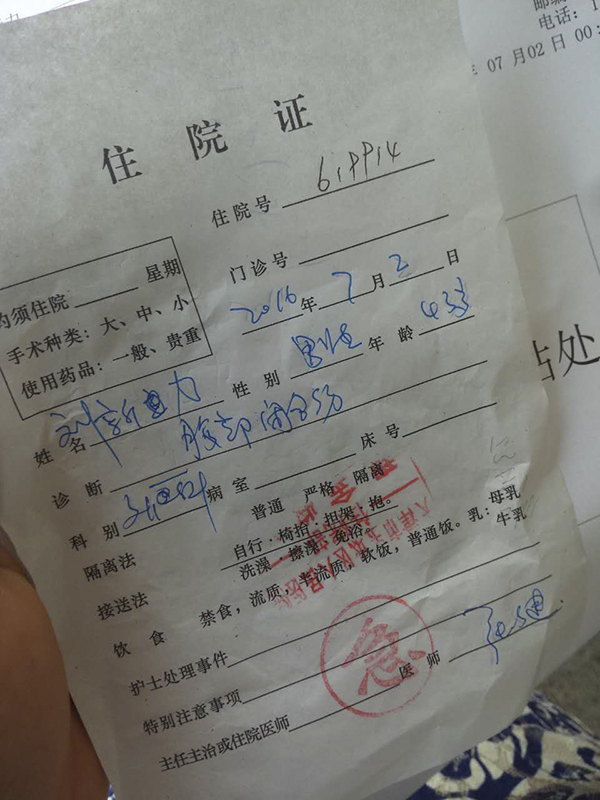 邮编
电话：1
07 月 02 日 00：
住 院 证
住 院 号 619914
门 诊 号
约须住院 星期
手术种类：大、中、小
使用药品：一般、贵重
2016 年 7 月 2 日
姓 名 刘新 力 性 别 男性 年 龄 43岁
诊 断 腹部闭合伤
科 别 病 室 床 号
隔离法 普通 严格 隔离
接送法 自行：椅抬：担架：抱。
洗澡 擦澡 免浴。
饮 食 禁食，流质，半流质，软饭，普通饭。乳：母乳
牛乳
护士处理事件
特别注意事项 医 师
主任主治或住院医师
急
占处